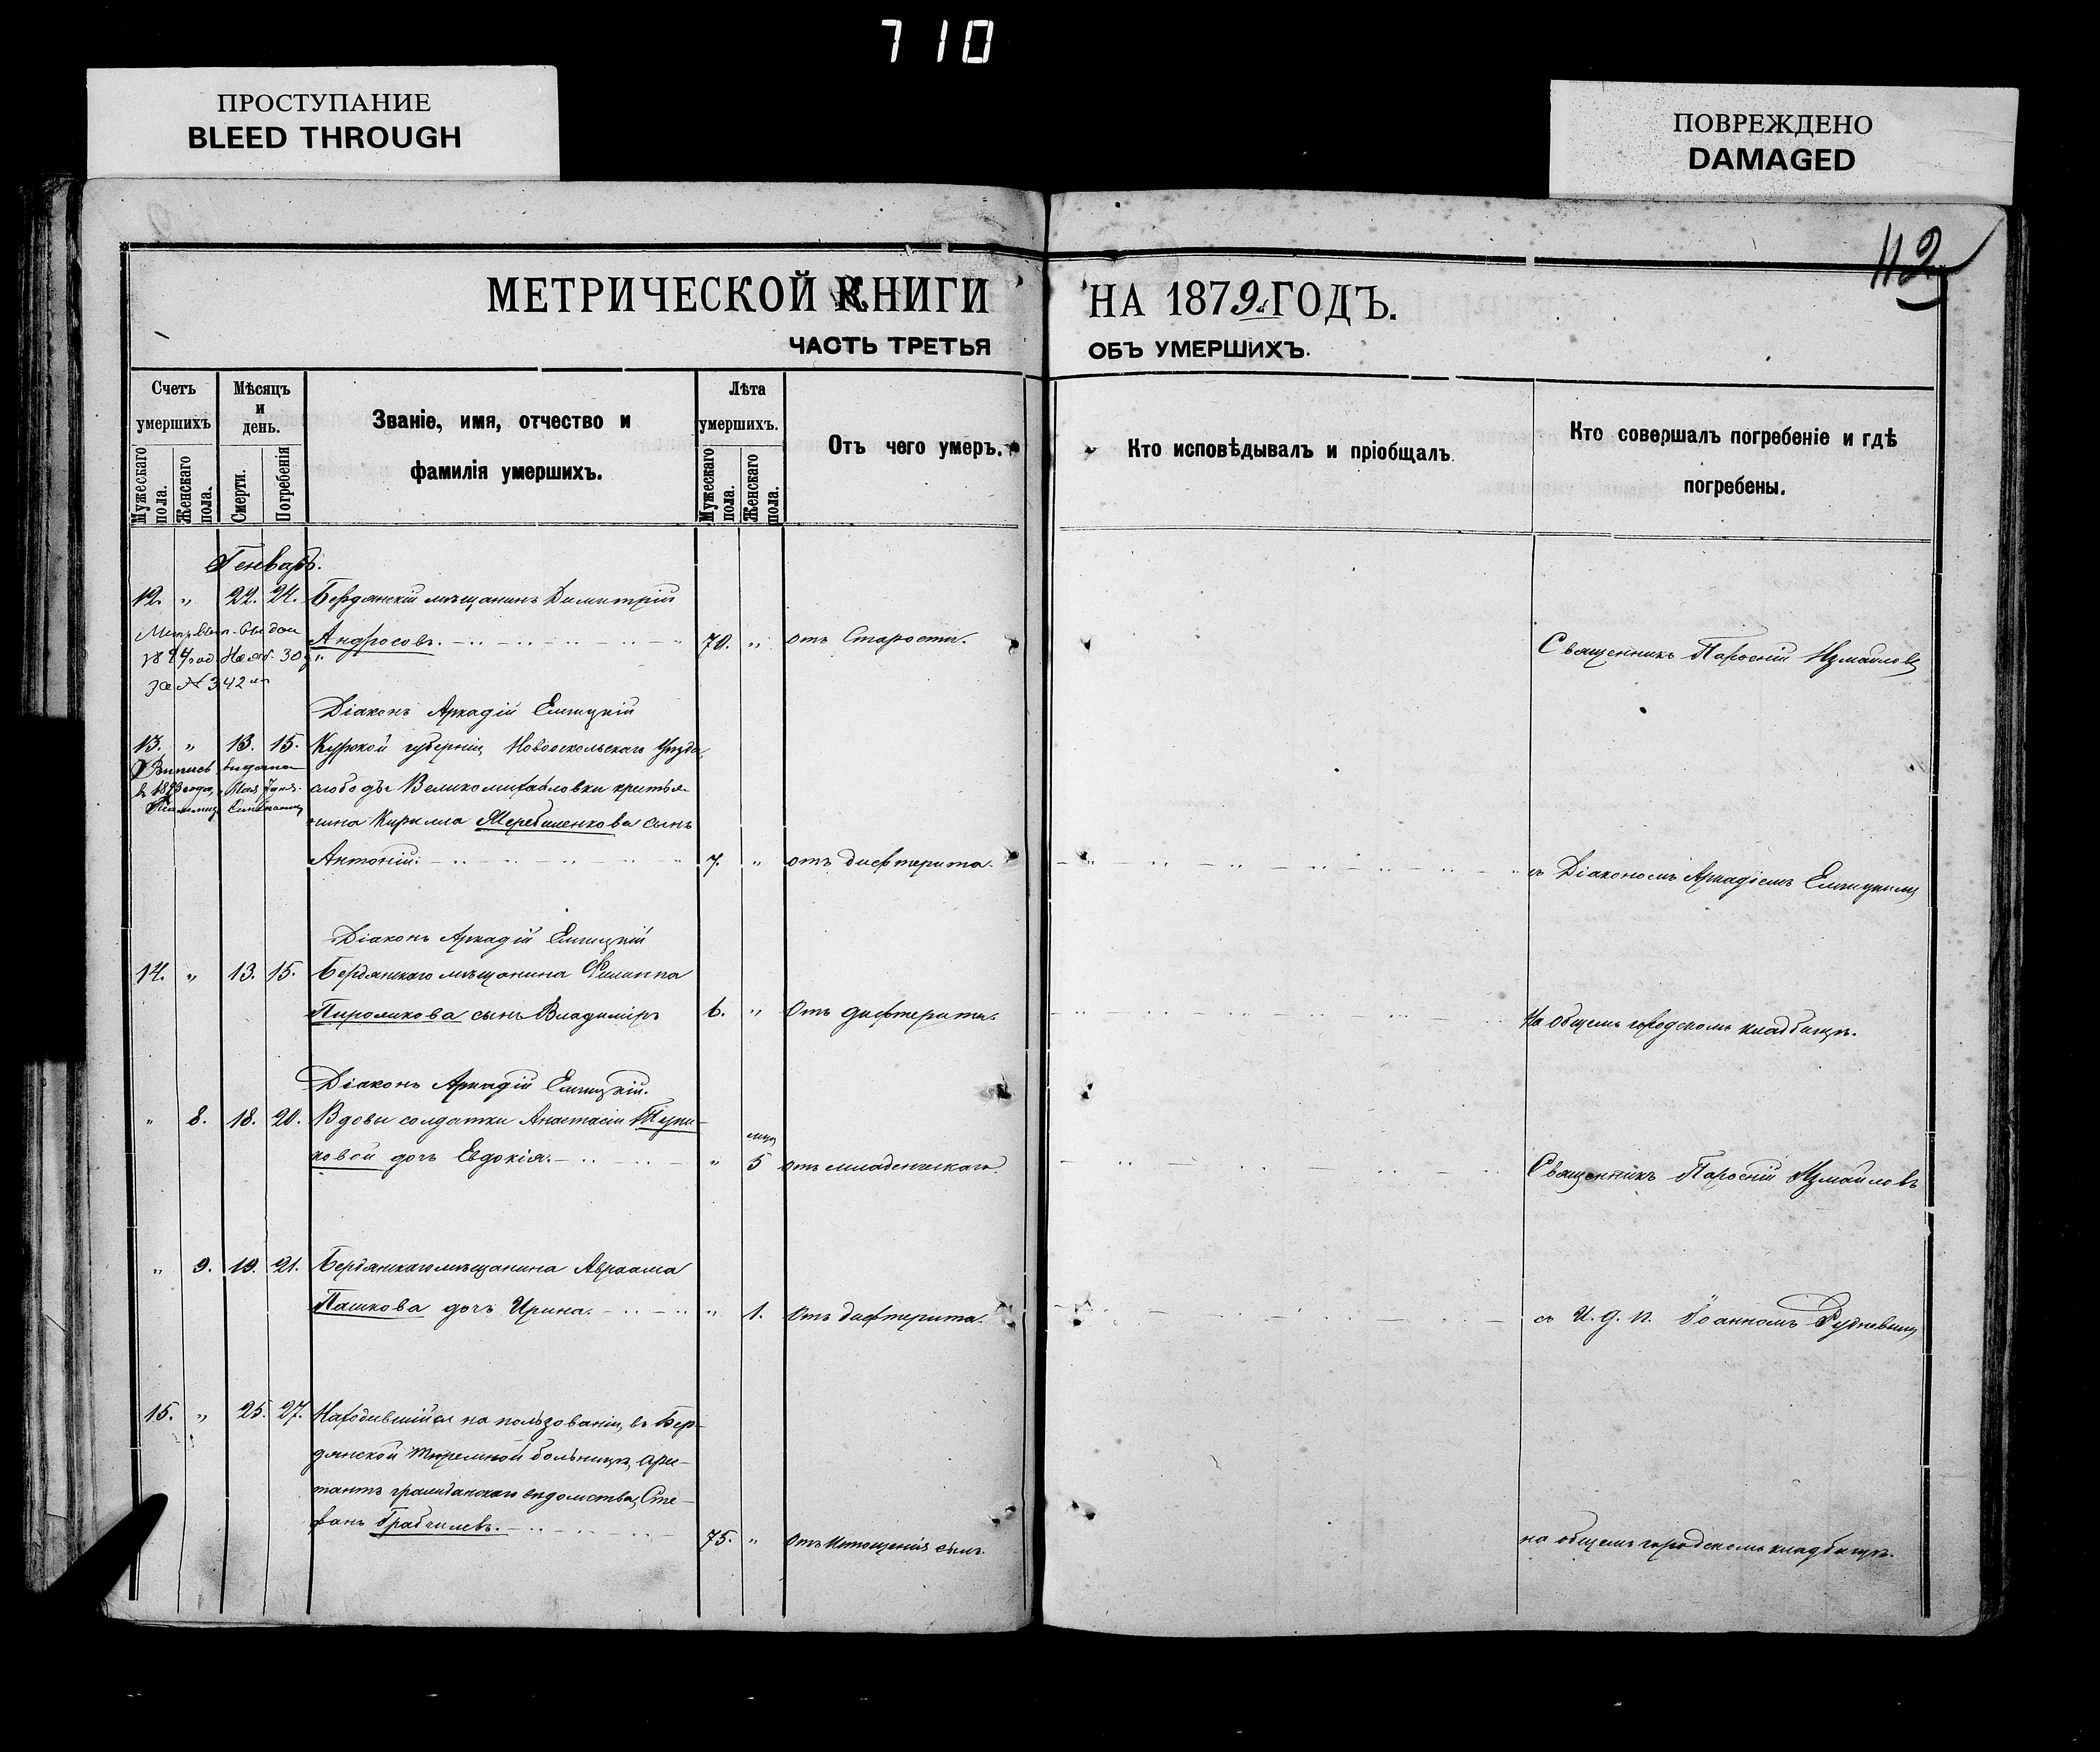 710
ПРОСТУПАНИЕ
BLEED THROUGH
ПОВРЕЖДЕНО
DAMAGED
112
МЕТРИЧЕСКОЙ КНИГИ
НА 1879 ГОДЪ.
ЧАСТЬ ТРЕТЬЯ
ОБЪ УМЕРШИХЪ.
Счетъ умершихъ
Мужескаго пола.
Женскаго пола.
Мѣсяцъ и день.
Смерти.
Погребенія
Званіе, имя, отчество и
фамилія умершихъ.
Лѣта умершихъ.
Мужескаго пола.
Женскаго пола.
Отъ чего умеръ.
Кто исповѣдывалъ и пріобщалъ
Кто совершалъ погребеніе и гдѣ
погребены.
Генварь.
12. " 22. 24. Бердянскій мѣщанинъ Димитрій
Андросовъ. 70. " отъ Старости.
Священникъ Парѳеній Измаиловъ
30
за № 342
Діаконъ Аркадій
13. " 13. 15. Курской губерніи, Новооскольскаго уѣзда,
слободы Великомихайловки крестья-
нина Кирилла сынъ
Антоній. 7. " отъ дифтерита.
съ Діакономъ Аркадіемъ
Діаконъ Аркадій
14. " 13. 15. Бердянскаго мѣщанина Филиппа
сынъ Владиміръ 6. " Отъ дифтерита.
На общемъ городскомъ кладбищѣ.
Діаконъ Аркадій
" 8. 18. 20. Вдовы солдатки Анастасіи
ковой дочь Евдокія. " 5 отъ младенческаго.
Священникъ Парѳеній Измаиловъ
" 9. 19. 21. Бердянскаго мѣщанина Авраама
Пашкова дочь Ирина. " 1. Отъ дифтерита.
съ И. д. п. Іоанномъ Рудневымъ
15. " 25. 27. Находившійся на пользованіи, въ Бер-
дянской тюремной больницѣ, аре-
стантъ гражданскаго вѣдомства, Сте-
фанъ 75. " Отъ истощенія силъ.
на общемъ городскомъ кладбищѣ.